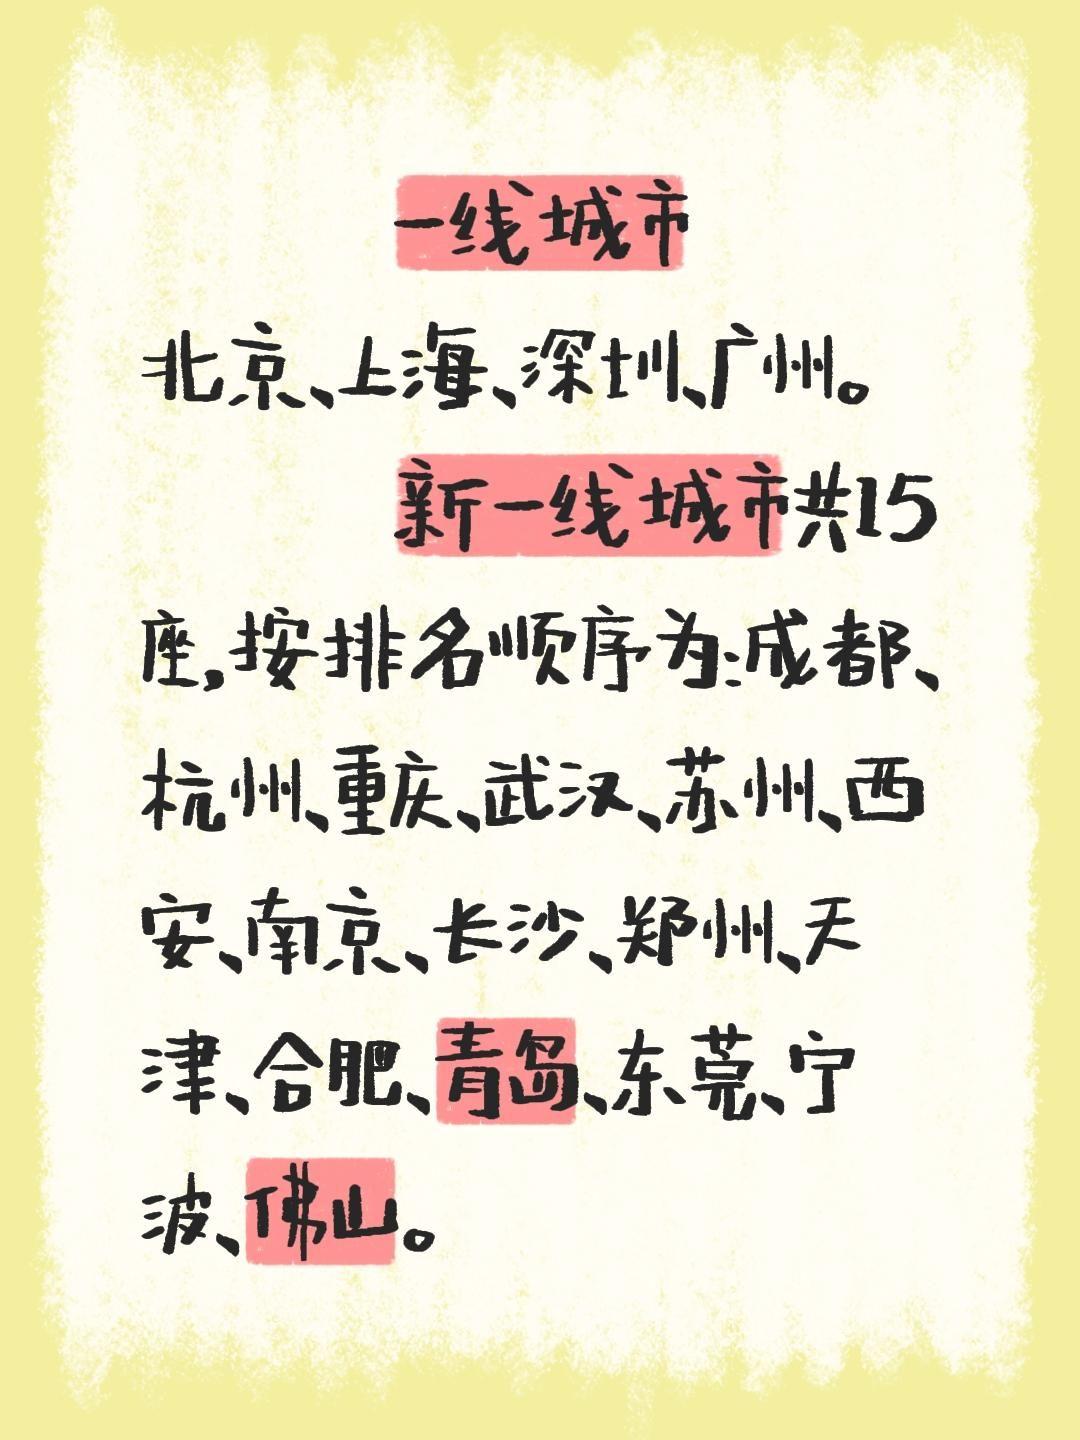 一线城市
北京、上海、深圳、广州。
新一线城市共15
座,按排名顺序为:成都、
杭州、重庆、武汉、苏州、西
安、南京、长沙、郑州、天
津、合肥、青岛、东莞、宁
波、佛山。